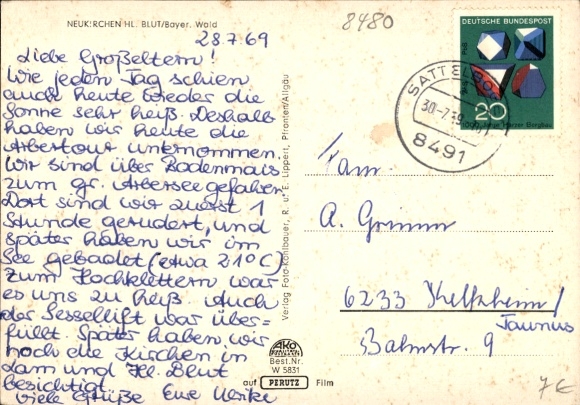 NEUKIRCHEN HL. BLUT/Bayer. Wald
8480
28.7.69
Liebe Großeltern!
Wie jeden Tag schien
auch heute wieder die
Sonne sehr heiß. Deshalb
haben wir heute die
Arbertour unternommen.
Wir sind über Bodenmais
zum gr. Arbersee gefahren
Dort sind wir zuerst 1
Stunde gerudert, und
später haben wir im
See gebadet (etwa 21°C)
zum Hochklettern war
es uns zu heiß. Auch
der Sessellift war über-
füllt. Später haben wir
noch die Kirchen in
Lam und Hl. Blut
besichtigt.
Viele Grüße Eure Ulrike
Verlag Foto-Kohlbauer, R. u. E. Lippert, Pfronten/Allgäu
DEUTSCHE BUNDESPOST
20
1000 Jahre Harzer Bergbau
30.-7.69
8491
Fam.
A. Grimm
6233 Kelkheim/
Taunus
Bahnstr. 9
AKO
Best.Nr.
W 5831
auf PERUTZ Film
7€